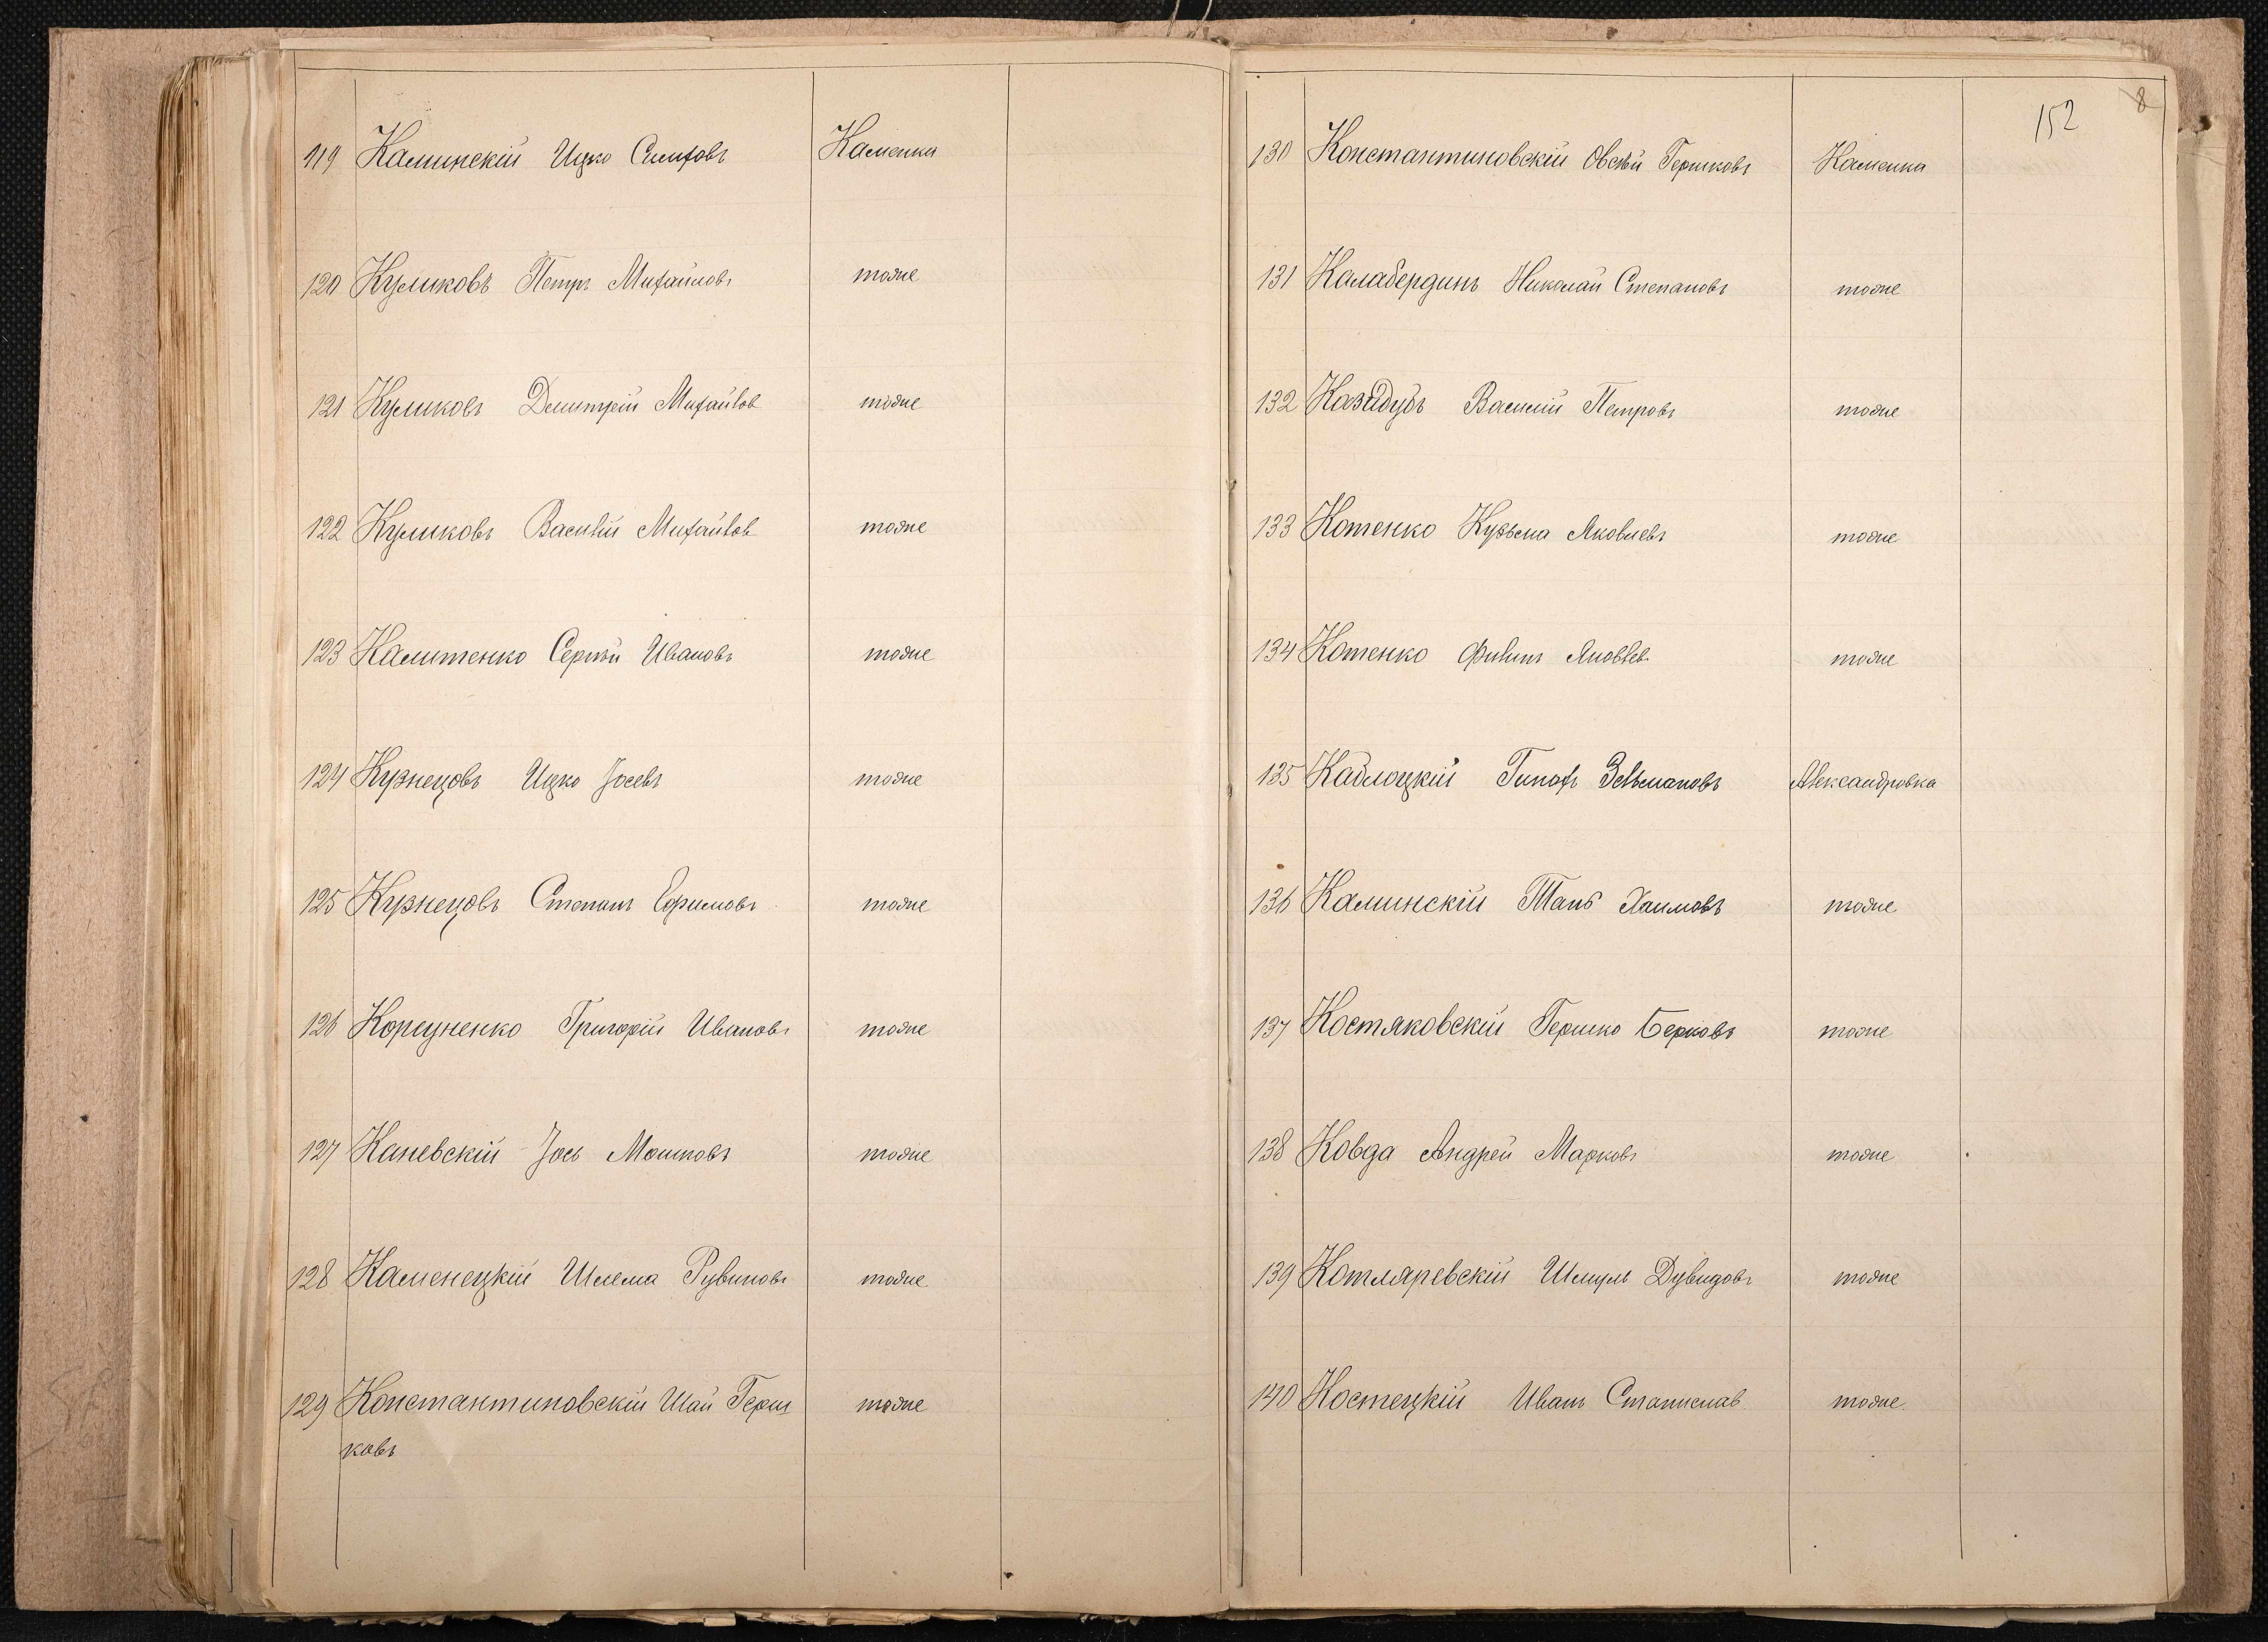 119 Калинскій Ицко Симховъ Каменка
120 Куликовъ Петръ Михайловъ тоже
121 Куликовъ Дмитрій Михайлов тоже
122 Куликовъ Василій Михайлов тоже
123 Калитенко Сергѣй Ивановъ тоже
124 Кузнецовъ Ицко Іосевъ тоже
125 Кузнецовъ Степанъ Ефимовъ тоже
126 Корсуненко Григорій Ивановъ тоже
127 Каневскій Іось Мошковъ тоже
128 Каменецкій Шлема Рувиновъ тоже
129 Константиновскій Шай Герш
ковъ тоже
152 8
130 Константиновскій Овсѣй Гершковъ Каменка
131 Калабердинъ Николай Степановъ тоже
132 Казидубъ Василій Петровъ тоже
133 Котенко Кузьма Яковлевъ тоже
134 Котенко Филипъ Яковлев тоже
135 Каблуцкій Зельмановъ Александровка
136 Калинскій Хаимовъ тоже
137 Костяковскій Гершко Берковъ тоже
138 Ковда Андрей Марковъ тоже
139 Котляревскій Шмуль Дувидовъ тоже
140 Костецкій Иванъ Станислав тоже